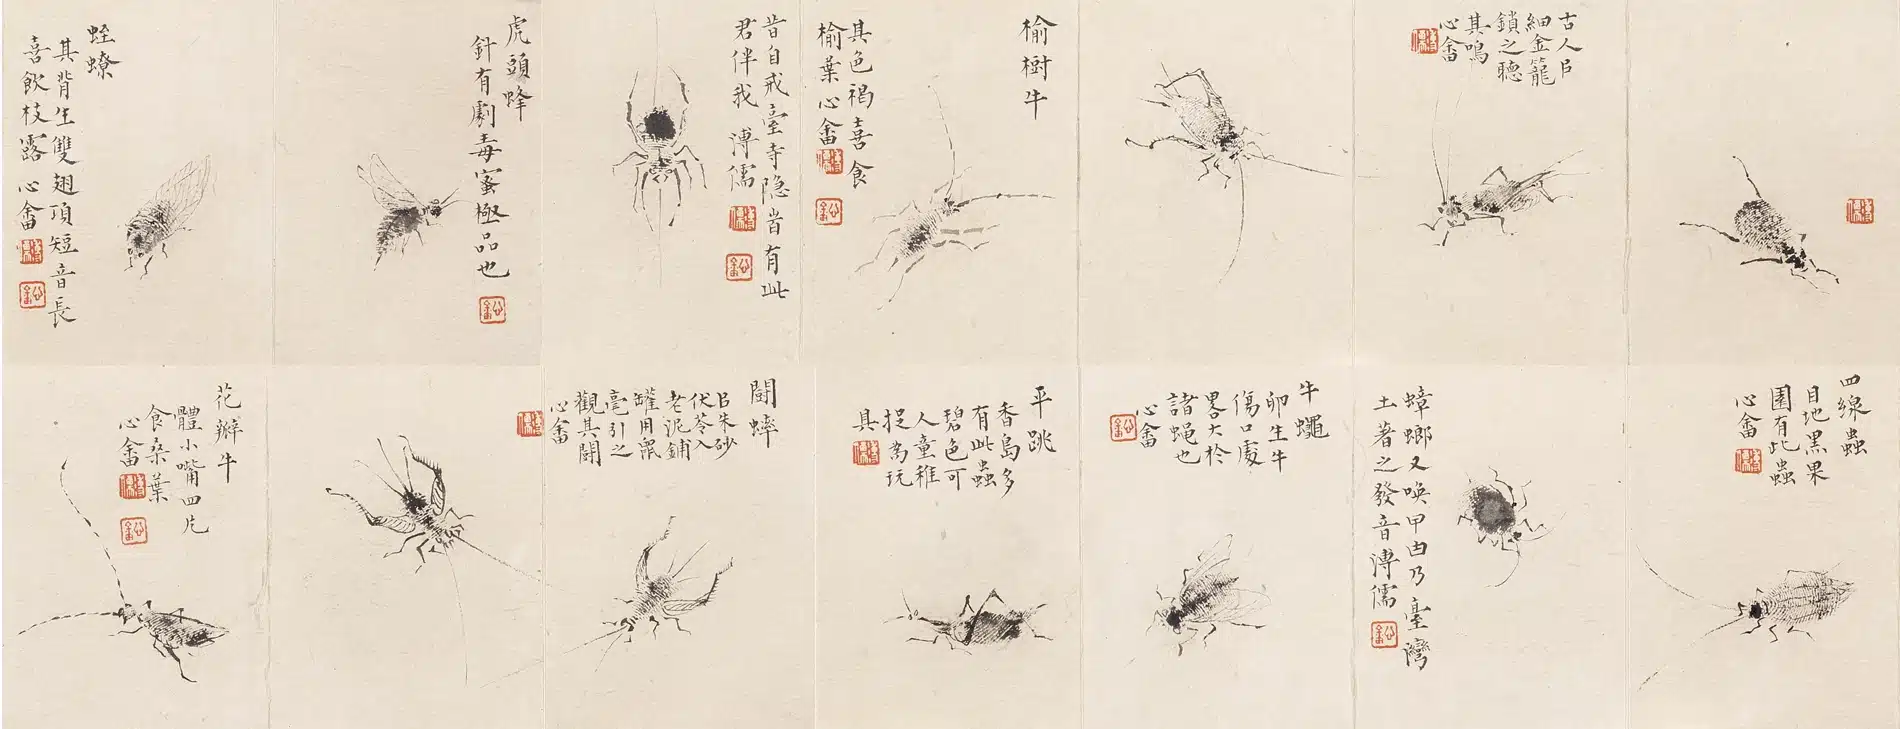 溥儒
古人㠯
細金籠
鎖之聽
其鳴
心畬
溥儒
榆樹牛
其色褐喜食
榆葉心畬
溥儒
昔自戒臺寺隐峕有此
君伴我 溥儒
溥儒
虎頭蜂
針有劇毒蜜極品也
蛭蟟
其背生雙翅項短音長
喜飲枝露心畬
溥儒
四線蟲
目地黑果
園有此蟲
心畬
溥儒
蟑螂又喚甲甴乃臺灣
土著之發音溥儒
牛蠅
卵生牛
傷口處
畧大於
諸蝇也
心畬
平跳
香島多
有此蟲
碧色可
人童稚
捉為玩
具
溥儒
鬪蟀
㠯朱砂
伏苓入
老泥鋪
罐用鼠
毫引之
觀其鬪
心畬
溥儒
花瓣牛
體小嘴四片
食桑葉
心畬
溥儒